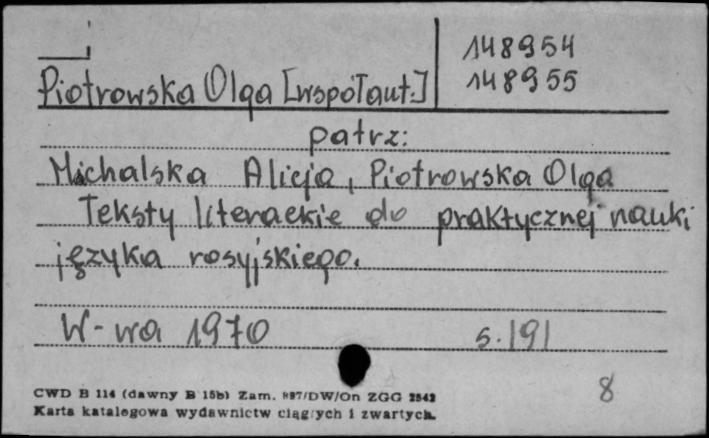 148954
148955
Piotrowska Olga [współaut.]
patrz:
Michalska Alicja, Piotrowska Olga
Teksty literackie do praktycznej nauki
języka rosyjskiego.
W-wa 1970 s. 191
8
CWD B 114 (dawny B 15b) Zam. 897/DW/On ZGG 2542
Karta katalogowa wydawnictw ciągłych i zwartych.